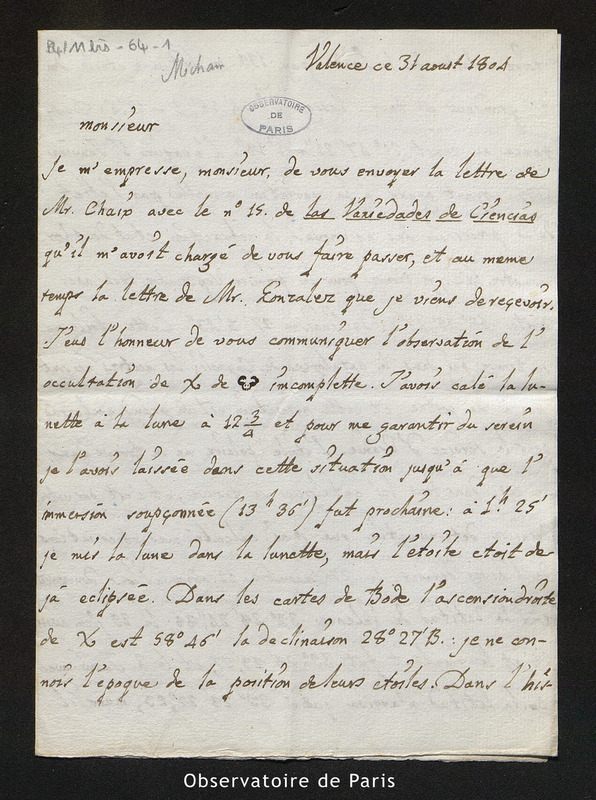 Valence ce 31 aoust 1804
OBSERVATOIRE
DE
PARIS
monsieur
Je m'empresse, monsieur, de vous envoyer la lettre de
Mr. Chaix avec le nº 15. de las Variedades de Ciencias
qu'il m'avoit chargé de vous faire passer, et au meme
temps la lettre de Mr. Gonzalez que je viens de reçevoir.
J'eus l'honneur de vous communiquer l'observation de l'
occultation de χ de ♉ incomplette. J'avois calé la lu-
nette à la lune à 12 3/4 et pour me garantir du serein
je l'avois laissée dans cette situation jusqu'à que l'
immersion soupçonnée (13h 36') fut prochaine: à 1h 25'
je mis la lune dans la lunette, mais l'etoile etoit de-
jà eclipsée. Dans les cartes de Bode l'ascension droite
de χ est 58º 46' la declinaison 28º 27' B.: je ne con-
nois l'epoque de la position de leurs etoiles. Dans l'his-
Observatoire de Paris